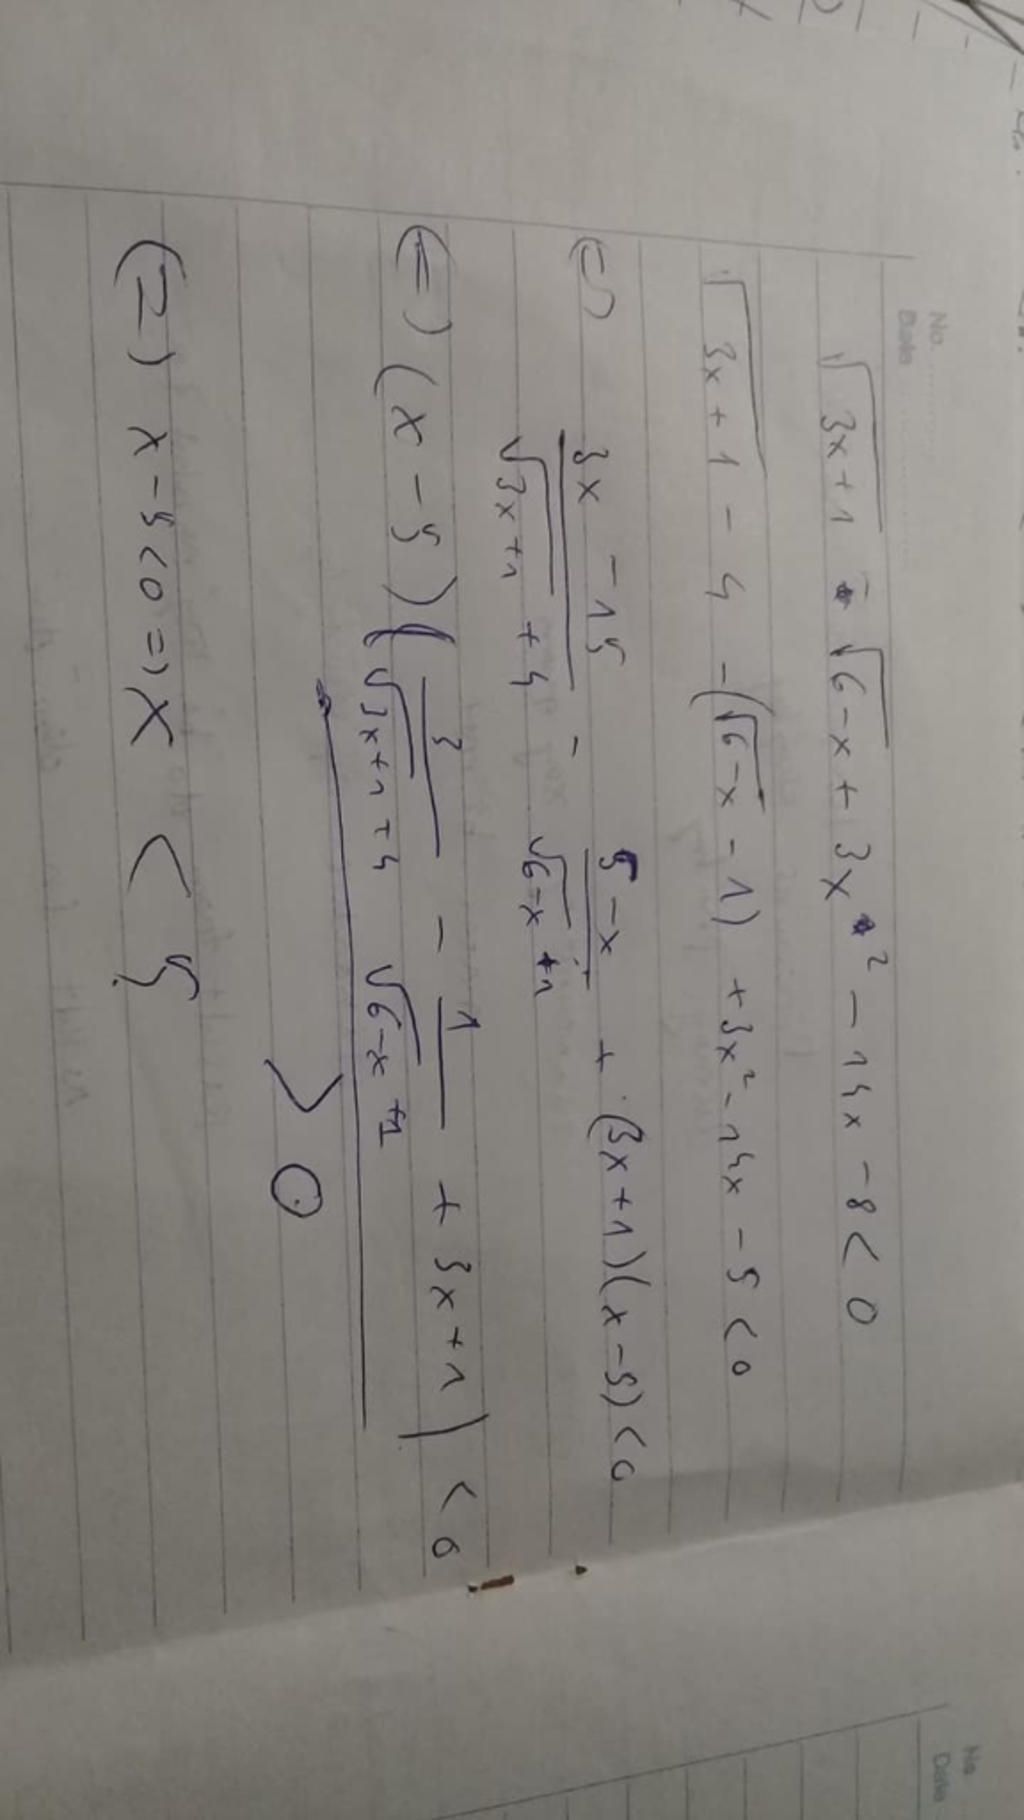 No.
Date
√(3x+1) - √(6-x) + 3x² - 14x - 8 < 0
√(3x+1) - 4 - (√(6-x) - 1) + 3x² - 14x - 5 < 0
(=) (3x - 15)/(√(3x+1) + 4) - (5-x)/(√(6-x) + 1) + (3x+1)(x-5) < 0
(=) (x - 5)(3/(√(3x+1) + 4) - 1/(√(6-x) + 1) + 3x+1) < 0
> 0
(=) x - 5 < 0 => x < 5
No
Date